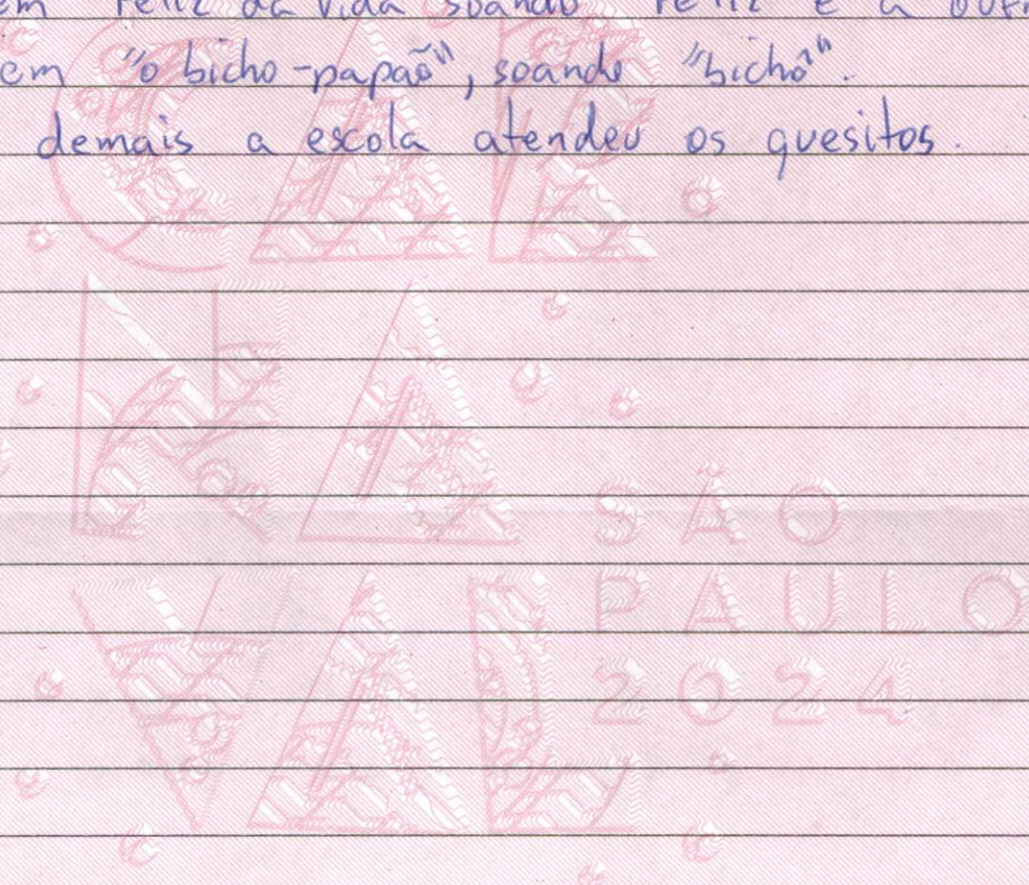 em feliz da vida soando feliz e a
em "o bicho-papaõ", soando "bichõ".
demais a escola atendeu os quesitos.
CAR
NA
SÃO
VAL
PAULO
2024